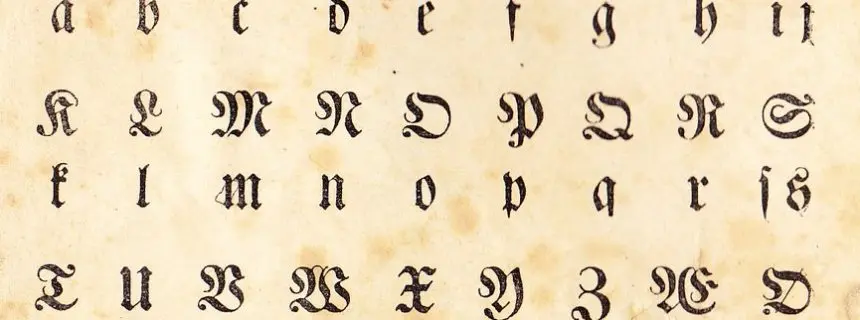 a b c d e f g h i j
K L M N O P Q R S
k l m n o p q r ſ s
T U V W X Y Z Æ Ø